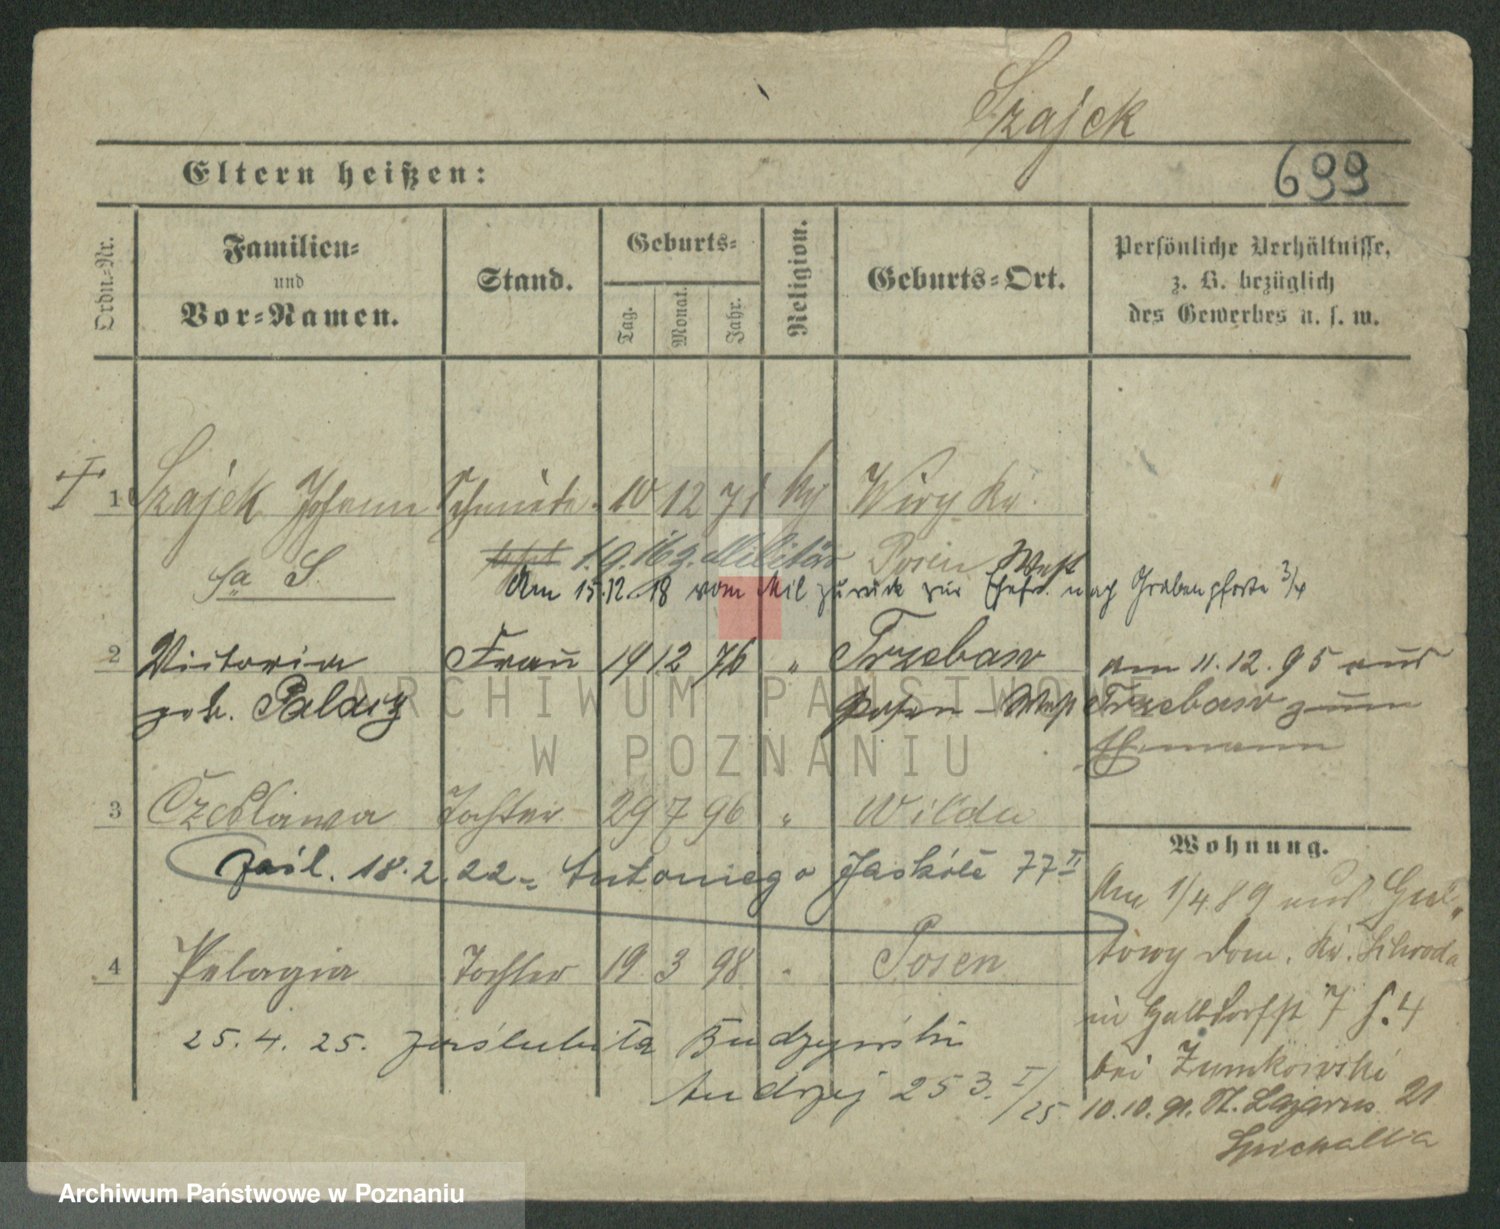 Szajek
Eltern heißen:
699
Ordn.-Nr.
Familien-
und
Vor-Namen.
Stand.
Geburts-
Tag.
Monat.
Jahr.
Religion.
Geburts-Ort.
Persönliche Verhältnisse,
z. B. bezüglich
des Gewerbes u. s. w.
1 Szajek Johann Schmiede 10 12 71 Wiry Kr.
fa S. 1.9.16 z. Militär Posen West
Am 15.12.18 vom Mil zurück zur Ehefr. nach Grabenpforte 3/4
2 Victoria Frau 19 12 76 " Trzebaw am 11.12.95 aus
geb. Palacz Posen-West Trzebaw zum
Ehemann
3 Czeslawa Tochter 29 7 96 " Wilda
zaśl. 18.2.22 = Antoniego Jaskóle 77 II
4 Pelagia Tochter 19 3 98 " Posen
25.4.25. zaślubiła Budzyński
Andrzej 25 3. I/25
Wohnung.
Am 1/4 89 aus Gul-
towy Dom. Kr. Schroda
in Halbdorfst 7 H. 4
bei Zumkowski
10.10.91. St. Lazarus 21
Spichalla
ARCHIWUM PAŃSTWOWE
W POZNANIU
Archiwum Państwowe w Poznaniu